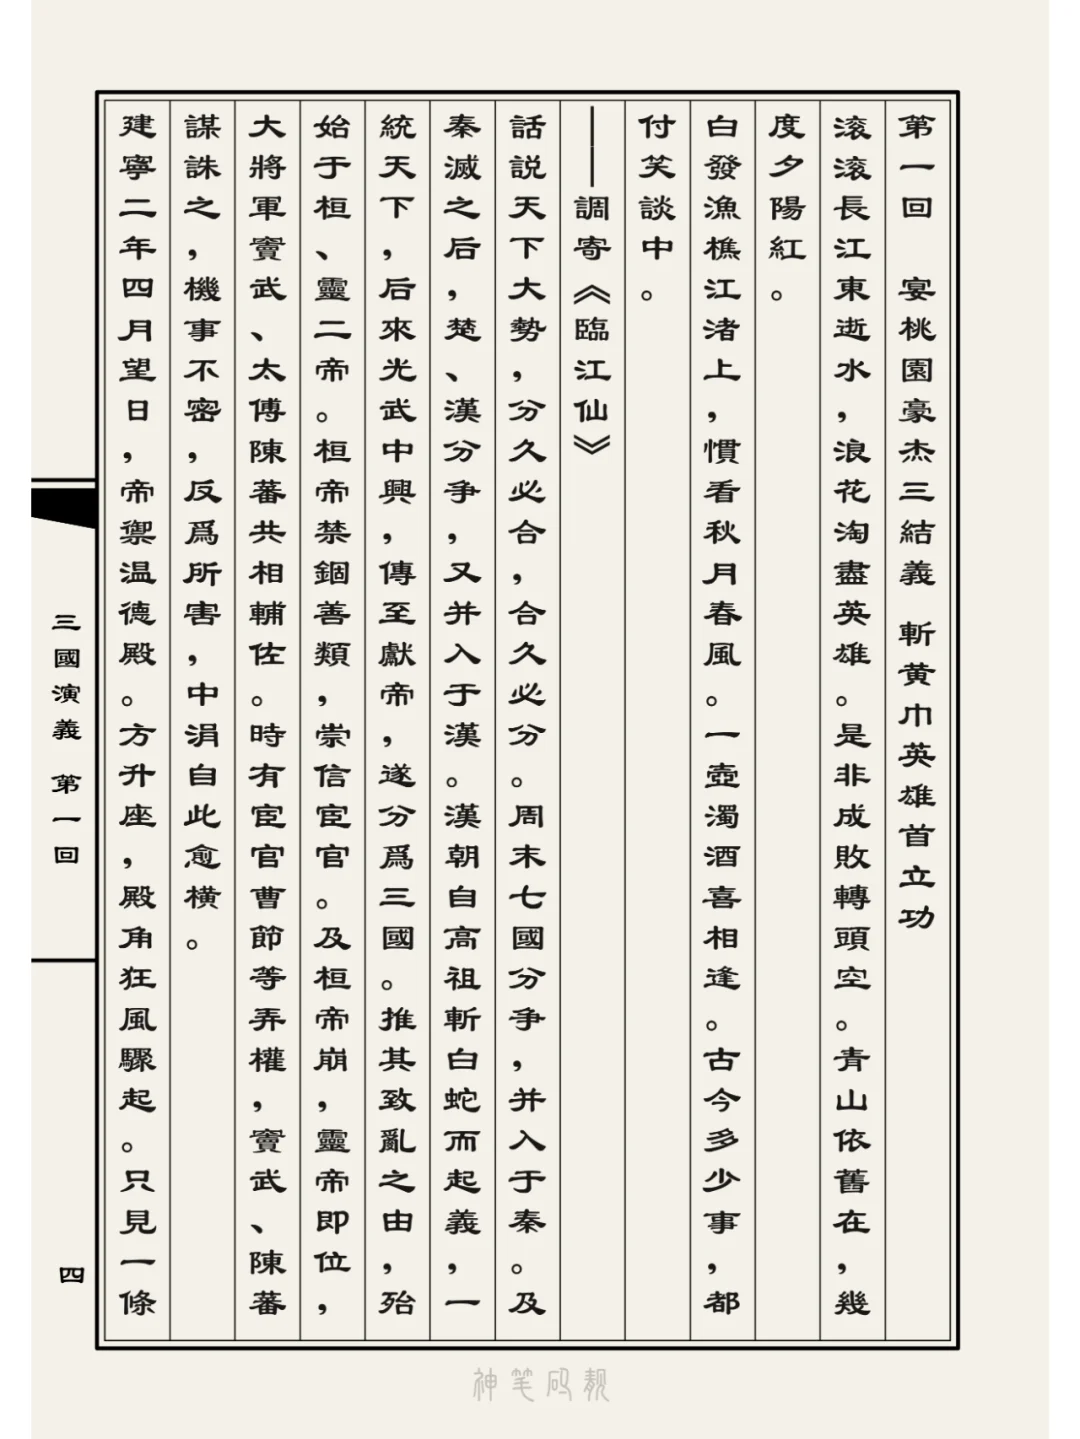 第一回　宴桃園豪杰三結義 斬黄巾英雄首立功
滚滚長江東逝水，浪花淘盡英雄。是非成敗轉頭空。青山依舊在，幾
度夕陽紅。
白發漁樵江渚上，慣看秋月春風。一壺濁酒喜相逢。古今多少事，都
付笑談中。
——調寄《臨江仙》
話説天下大勢，分久必合，合久必分。周末七國分争，并入于秦。及
秦滅之后，楚、漢分争，又并入于漢。漢朝自高祖斬白蛇而起義，一
統天下，后來光武中興，傳至獻帝，遂分爲三國。推其致亂之由，殆
始于桓、靈二帝。桓帝禁錮善類，崇信宦官。及桓帝崩，靈帝即位，
大將軍竇武、太傅陳蕃共相輔佐。時有宦官曹節等弄權，竇武、陳蕃
謀誅之，機事不密，反爲所害，中涓自此愈横。
建寧二年四月望日，帝禦温德殿。方升座，殿角狂風驟起。只見一條
三國演義 第一回
四
神笔码靓